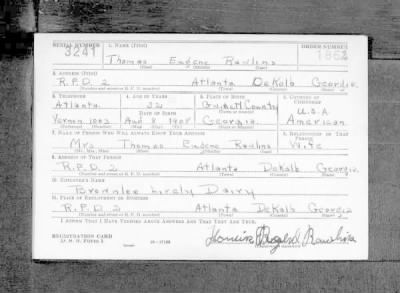 SERIAL NUMBER 1. NAME (Print) ORDER NUMBER
3241 Thomas Eugene Rawlins 1862
(First) (Middle) (Last)
2. ADDRESS (Print)
R.F.D. 2 Atlanta DeKalb Georgia
(Number and street or R. F. D. number) (Town) (County) (State)
3. TELEPHONE 4. AGE IN YEARS 5. PLACE OF BIRTH 6. COUNTRY OF CITIZENSHIP
Atlanta 32 Gwinnett County U.S.A
Vernon 1083 Aug 8 1908 Georgia American
7. NAME OF PERSON WHO WILL ALWAYS KNOW YOUR ADDRESS 8. RELATIONSHIP OF THAT PERSON
Mrs Thomas Eugene Rawlins Wife
(Mr., Mrs., Miss) (First) (Middle) (Last)
9. ADDRESS OF THAT PERSON
R.F.D. 2 Atlanta DeKalb Georgia
(Number and street or R. F. D. number) (Town) (County) (State)
10. EMPLOYER'S NAME
Brownlee Lively Dairy
11. PLACE OF EMPLOYMENT OR BUSINESS
R.F.D. 2 Atlanta DeKalb Georgia
(Number and street or R. F. D. number) (Town) (County) (State)
I AFFIRM THAT I HAVE VERIFIED ABOVE ANSWERS AND THAT THEY ARE TRUE.
REGISTRATION CARD
D. S. S. FORM 1